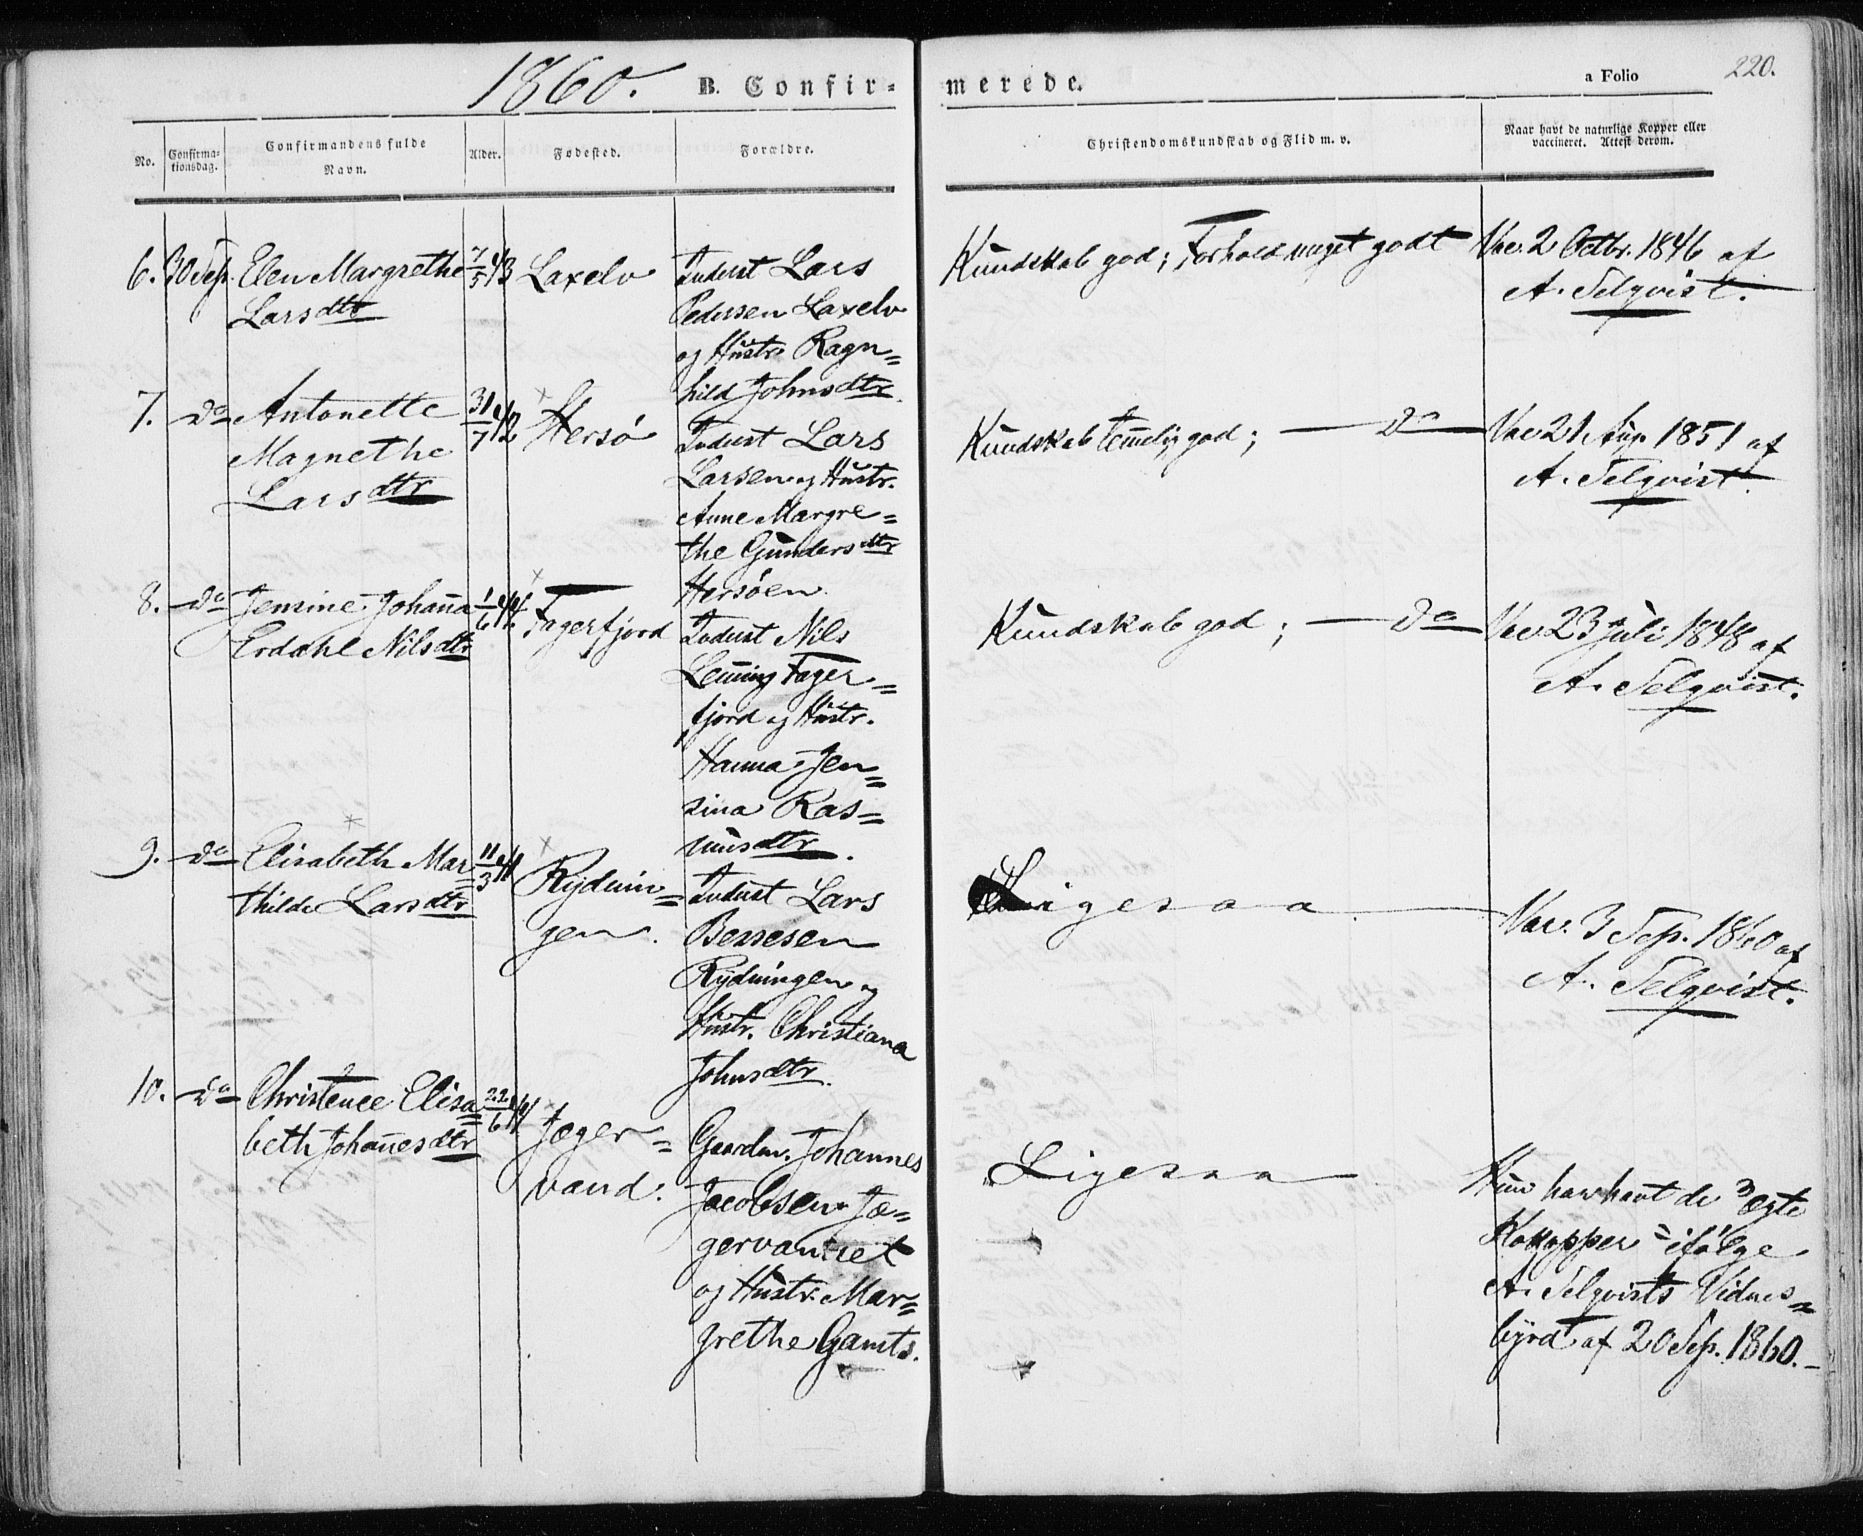 1860. B. Confir-
merede.
a Folio 220.
No.
Confirma-
tionsdag.
Confirmandens fulde
Navn.
Alder.
Fødested.
Forældre.
Christendomskundskab og Flid m. v.
Naar havt de naturlige Kopper eller
vaccineret. Attest derom.
6. 30 Sep. Elen Margrethe 7/5 43 Laxelv
Larsdtr
Indust Lars
Pedersen Laxelv
og Hustr. Ragn=
hild Johnsdtr.
Kundskab god; Forhold meget godt
Vac. 2 Octbr. 1846 af
A. Selqvist.
7. do Antonette 31/7 42 Hersø
Magnethe
Larsdtr
Indust Lars
Larsen og Hustr.
Anne Margre=
the Gundersdtr
Hersøen.
Kundskab temelig god; — do —
Vac 21 Aug. 1851 af
A. Selqvist.
8. do Jensine Johanna 1/6 44 Fagerfjord
Erdahl Nilsdtr
Indust Nils
Lenning Fager=
fjord og Hustr.
Hanna Jen=
sina Ras=
musdtr.
Kundskab god; — do —
Vac 23 juli 1848 af
A. Selqvist.
9. do Elisabeth Mar= 11/3 41 Rydnin=
thilde Larsdtr
gen.
Indust Lars
Bersesen
Rydningen og
Hustr. Christiana
Johnsdtr.
Ligesaa
Vac. 3 Sep. 1860 af
A. Selqvist.
10. do Christence Elisa= 22/6 44 Jæger=
beth Johannesdtr
vand.
Gaardm. Johannes
Jacobsen Jæ=
gervannet
og Hustr. Mar=
grethe Gamts.
Ligesaa
Hun har havt de ægte
Kokopper ifølge
A. Selqvists Vidnes=
byrd af 20 Sep. 1860.